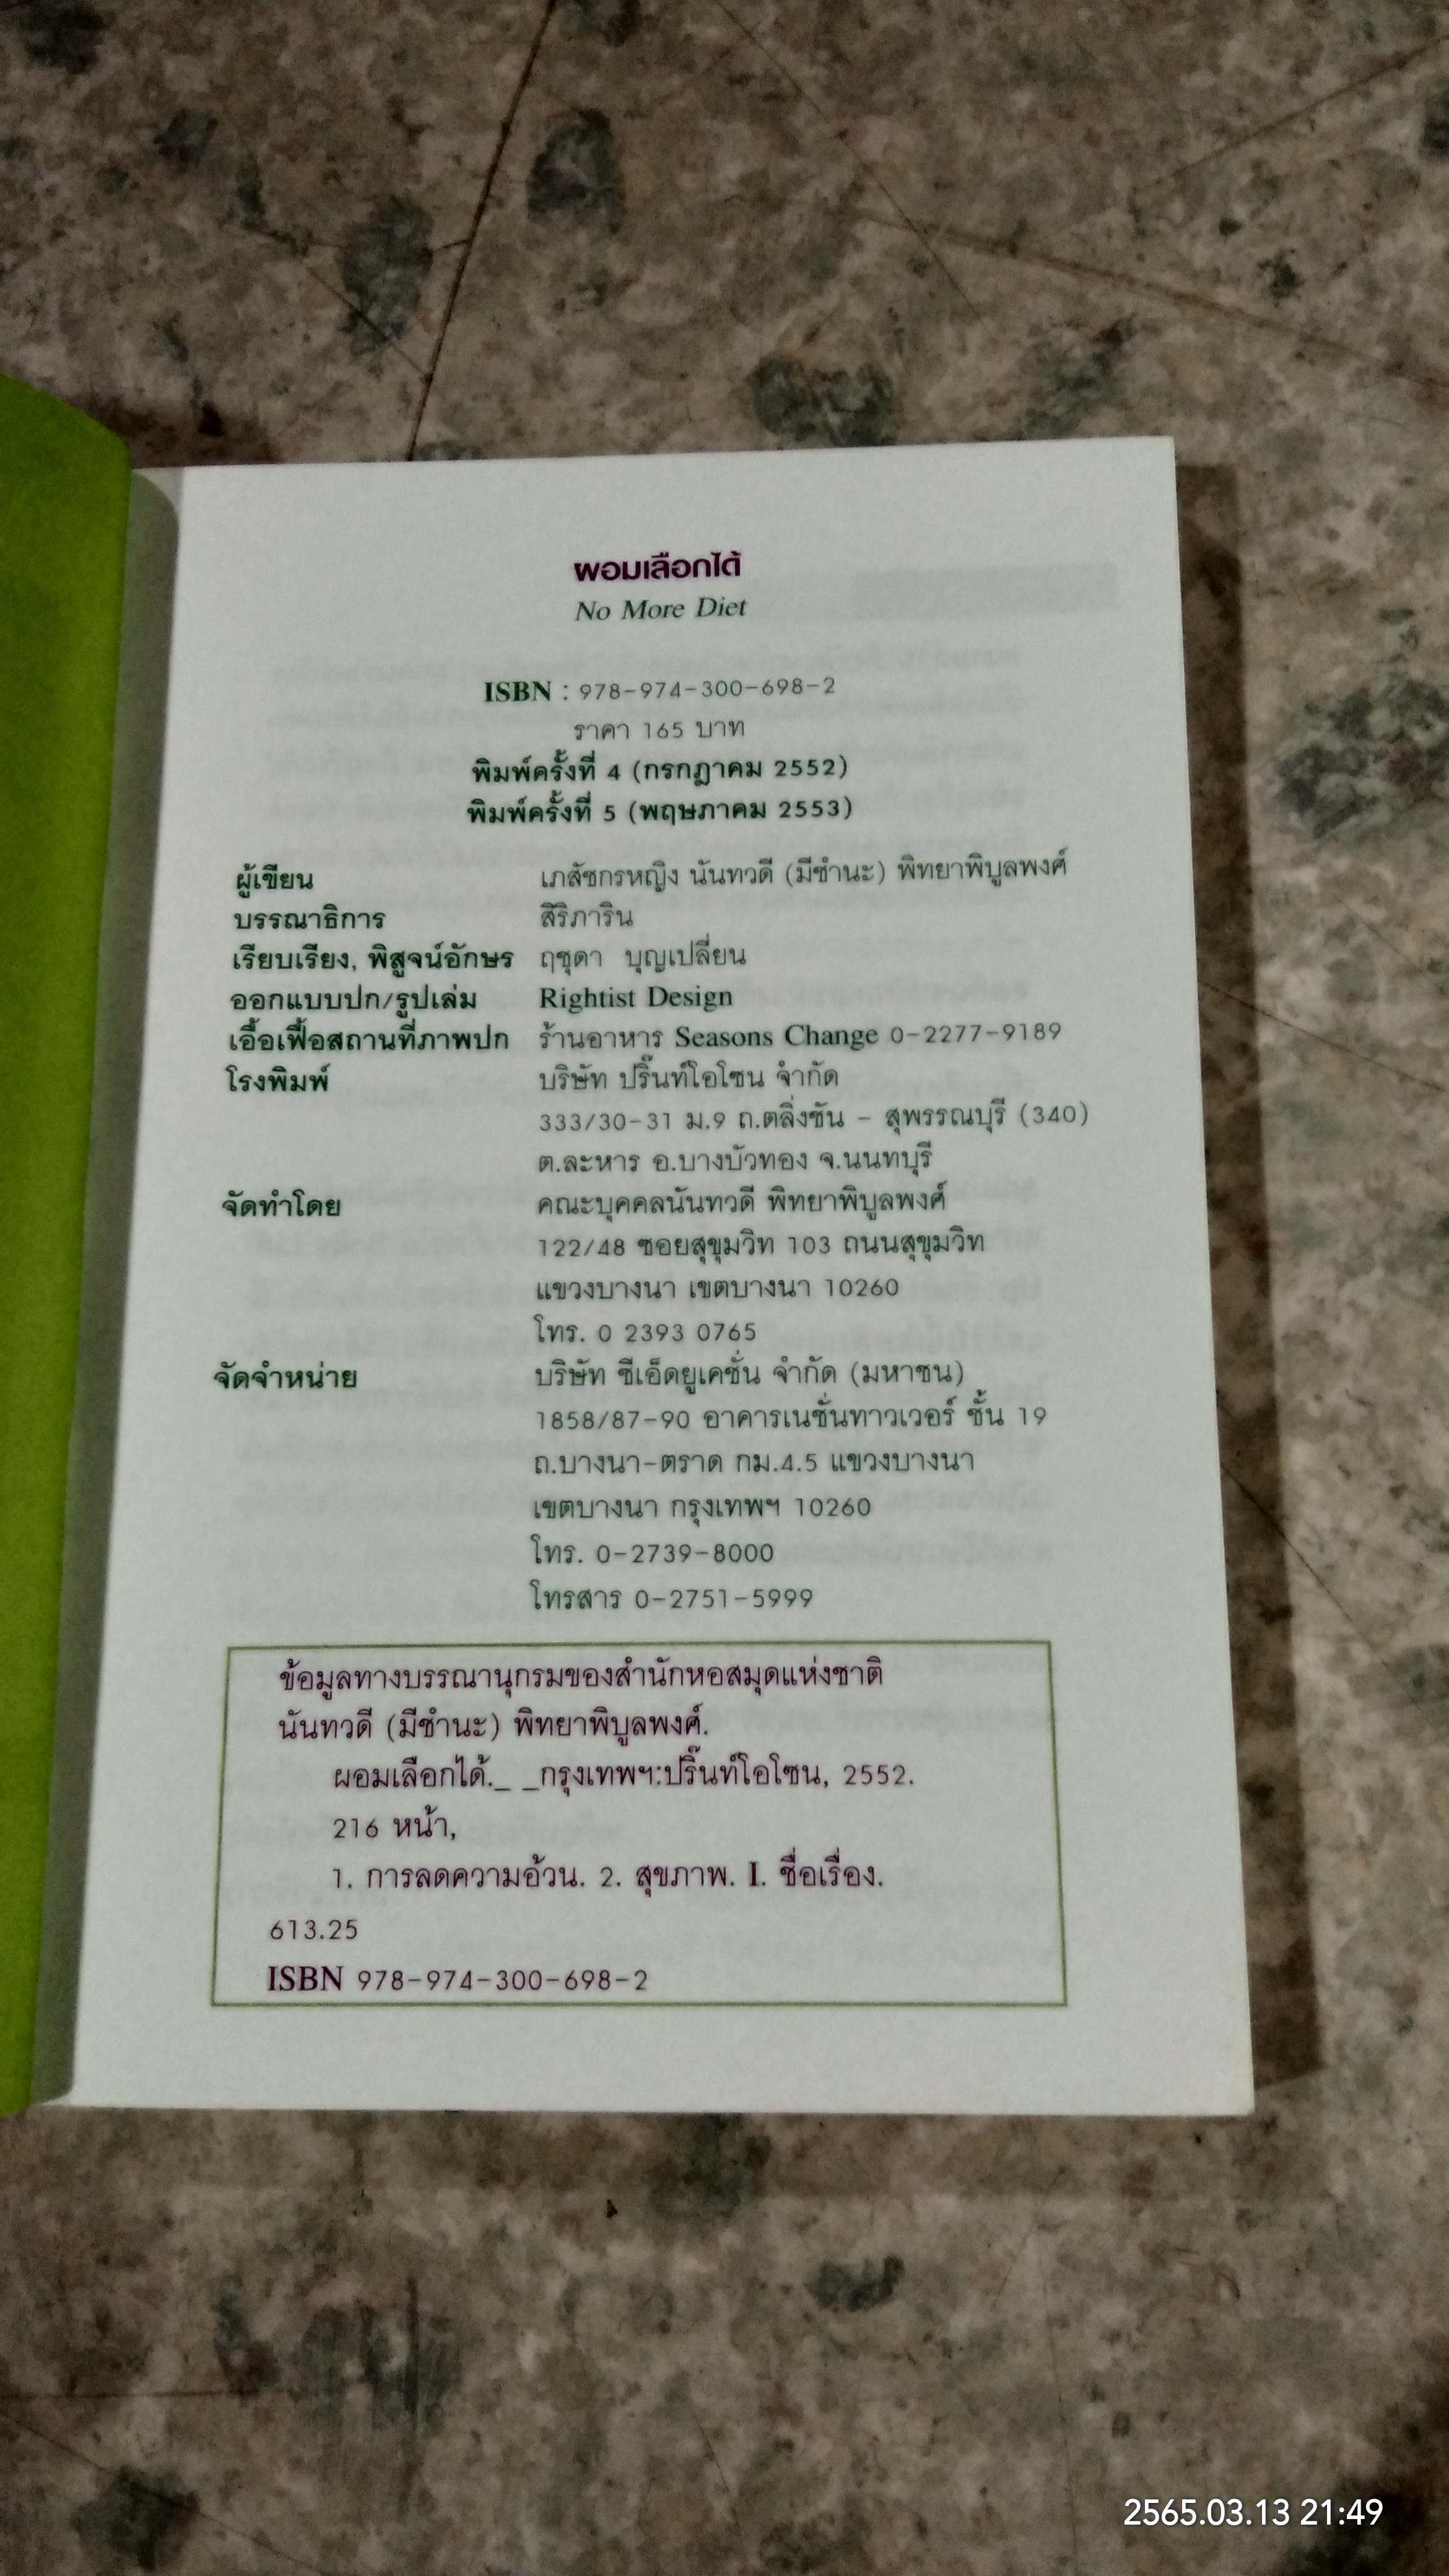 ผอมเลือกได้
No More Diet
ISBN : 978-974-300-698-2
ราคา 165 บาท
พิมพ์ครั้งที่ 4 (กรกฎาคม 2552)
พิมพ์ครั้งที่ 5 (พฤษภาคม 2553)
ผู้เขียน เภสัชกรหญิง นันทวดี (มีชำนะ) พิทยาพิบูลพงศ์
บรรณาธิการ สิริภาริน
เรียบเรียง, พิสูจน์อักษร ฤชุดา บุญเปลี่ยน
ออกแบบปก/รูปเล่ม Rightist Design
เอื้อเฟื้อสถานที่ภาพปก ร้านอาหาร Seasons Change 0-2277-9189
โรงพิมพ์ บริษัท ปริ๊นท์โอโซน จำกัด
333/30-31 ม.9 ถ.ตลิ่งชัน - สุพรรณบุรี (340)
ต.ละหาร อ.บางบัวทอง จ.นนทบุรี
จัดทำโดย คณะบุคคลนันทวดี พิทยาพิบูลพงศ์
122/48 ซอยสุขุมวิท 103 ถนนสุขุมวิท
แขวงบางนา เขตบางนา 10260
โทร. 0 2393 0765
จัดจำหน่าย บริษัท ซีเอ็ดยูเคชั่น จำกัด (มหาชน)
1858/87-90 อาคารเนชั่นทาวเวอร์ ชั้น 19
ถ.บางนา-ตราด กม.4.5 แขวงบางนา
เขตบางนา กรุงเทพฯ 10260
โทร. 0-2739-8000
โทรสาร 0-2751-5999
ข้อมูลทางบรรณานุกรมของสำนักหอสมุดแห่งชาติ
นันทวดี (มีชำนะ) พิทยาพิบูลพงศ์.
ผอมเลือกได้._ _กรุงเทพฯ:ปริ๊นท์โอโซน, 2552.
216 หน้า,
1. การลดความอ้วน. 2. สุขภาพ. I. ชื่อเรื่อง.
613.25
ISBN 978-974-300-698-2
2565.03.13 21:49